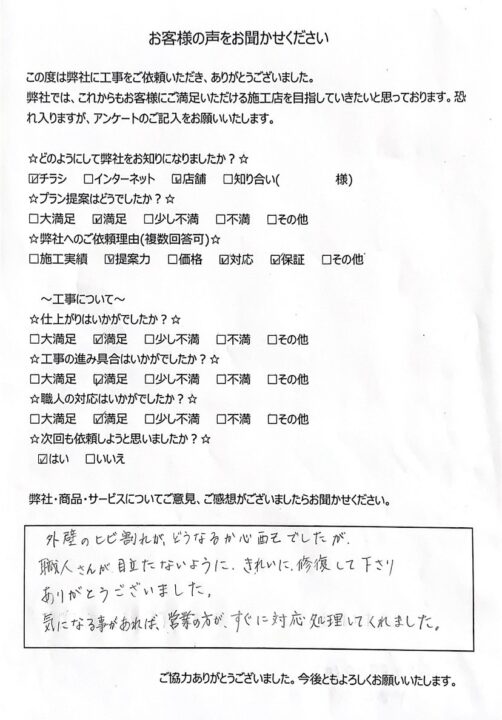 お客様の声をお聞かせください
この度は弊社に工事をご依頼いただき、ありがとうございました。
弊社では、これからもお客様にご満足いただける施工店を目指していきたいと思っております。恐
れ入りますが、アンケートのご記入をお願いいたします。
☆どのようにして弊社をお知りになりましたか？☆
☑チラシ ☐インターネット ☑店舗 ☐知り合い( 様)
☆プラン提案はどうでしたか？☆
☐大満足 ☑満足 ☐少し不満 ☐不満 ☐その他
☆弊社へのご依頼理由(複数回答可)☆
☐施工実績 ☑提案力 ☐価格 ☑対応 ☑保証 ☐その他
～工事について～
☆仕上がりはいかがでしたか？☆
☐大満足 ☑満足 ☐少し不満 ☐不満 ☐その他
☆工事の進み具合はいかがでしたか？☆
☐大満足 ☑満足 ☐少し不満 ☐不満 ☐その他
☆職人の対応はいかがでしたか？☆
☐大満足 ☑満足 ☐少し不満 ☐不満 ☐その他
☆次回も依頼しようと思いましたか？☆
☑はい ☐いいえ
弊社・商品・サービスについてご意見、ご感想がございましたらお聞かせください。
外壁のヒビ割れが、どうなるか心配でしたが、
職人さんが目立たないように、きれいに、修復して下さり
ありがとうございました。
気になる事があれば、営業の方が、すぐに対応処理してくれました。
ご協力ありがとうございました。今後ともよろしくお願いいたします。